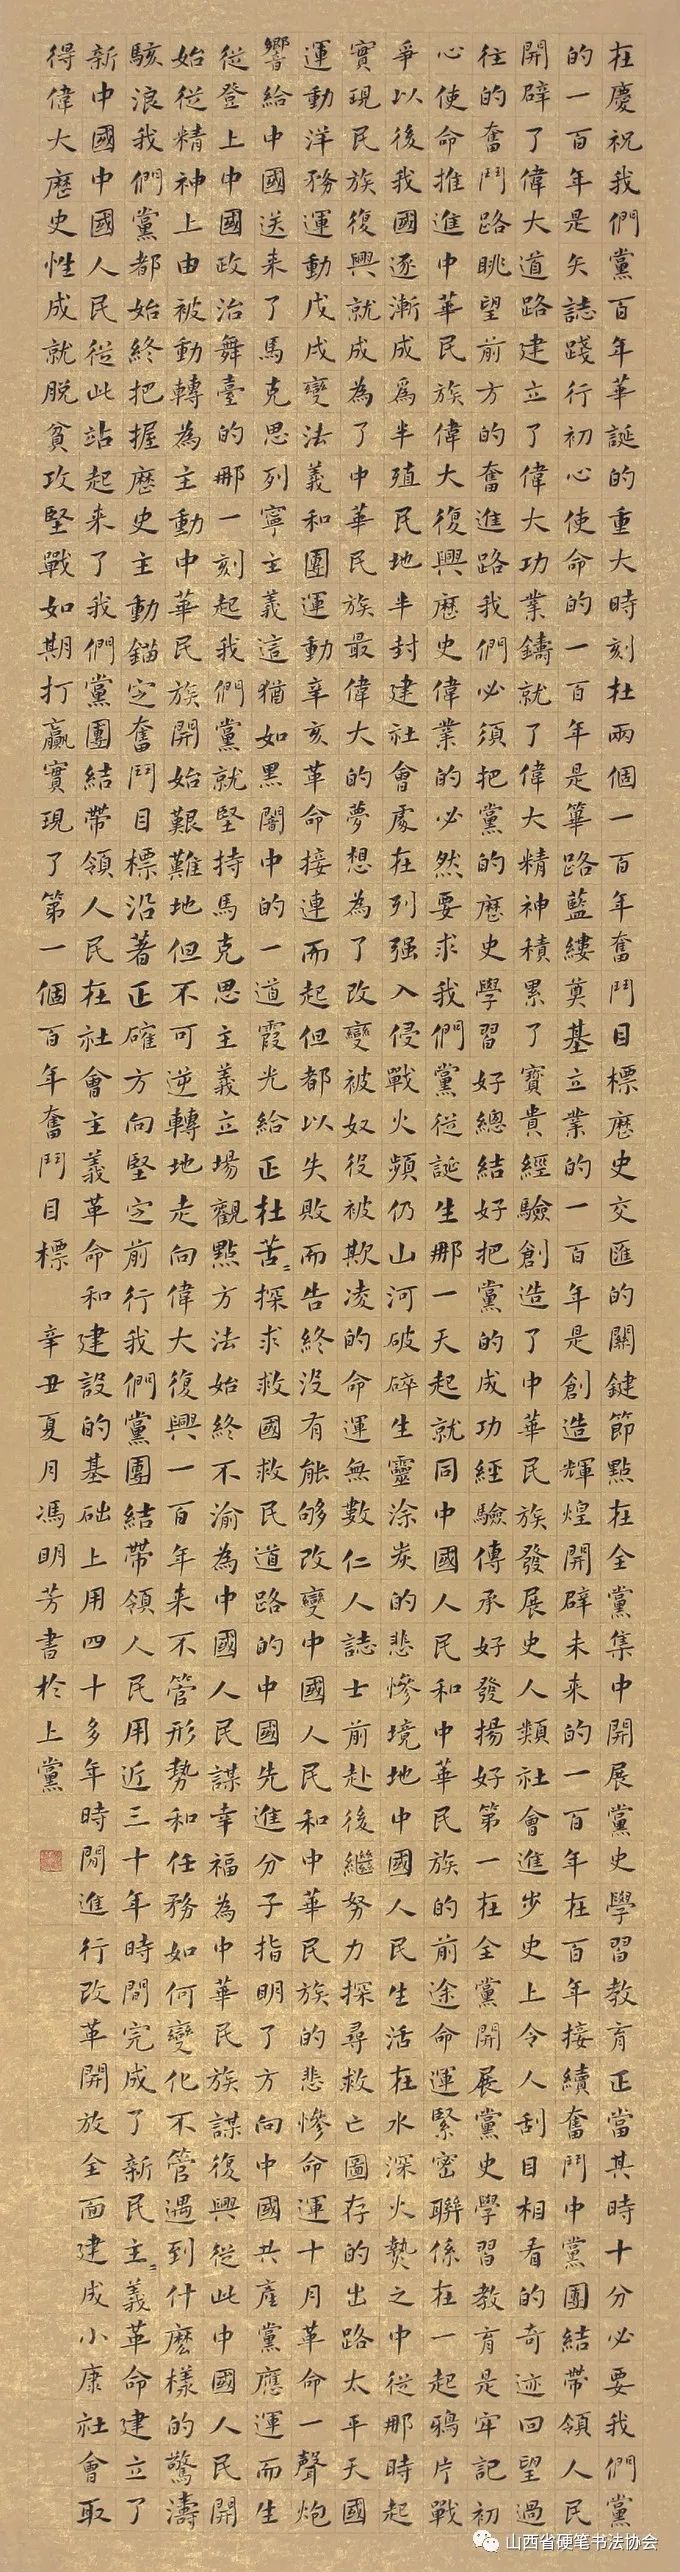 在慶祝我們黨百年華誕的重大時刻在兩個一百年奮鬥目標歷史交匯的關鍵節點在全黨集中開展黨史學習教育正當其時十分必要我們黨
的一百年是矢誌踐行初心使命的一百年是篳路藍縷奠基立業的一百年是創造輝煌開辟未來的一百年在百年接續奮鬥中黨團結帶領人民
開辟了偉大道路建立了偉大功業鑄就了偉大精神積累了寶貴經驗創造了中華民族發展史人類社會進步史上令人刮目相看的奇迹回望過
往的奮鬥路眺望前方的奮進路我們必須把黨的歷史學習好總結好把黨的成功經驗傳承好發揚好第一在全黨開展黨史學習教育是牢記初
心使命推進中華民族偉大復興歷史偉業的必然要求我們黨從誕生那一天起就同中國人民和中華民族的前途命運緊密聯係在一起鴉片戰
爭以後我國逐漸成爲半殖民地半封建社會處在列强入侵戰火頻仍山河破碎生靈涂炭的悲慘境地中國人民生活在水深火熱之中從那時起
實現民族復興就成為了中華民族最偉大的夢想為了改變被奴役被欺凌的命運無數仁人誌士前赴後繼努力探尋救亡圖存的出路太平天國
運動洋務運動戊戌變法義和團運動辛亥革命接連而起但都以失敗而告終没有能够改變中國人民和中華民族的悲慘命運十月革命一聲炮
響給中國送来了馬克思列寧主義這猶如黑闇中的一道霞光給正在苦〻探求救國救民道路的中國先進分子指明了方向中國共産黨應運而生
從登上中國政治舞臺的那一刻起我們黨就堅持馬克思主義立場觀點方法始終不渝為中國人民謀幸福為中華民族謀復興從此中國人民開
始從精神上由被動轉為主動中華民族開始艱難地但不可逆轉地走向偉大復興一百年来不管形勢和任務如何變化不管遇到什麽樣的驚濤
駭浪我們黨都始終把握歷史主動錨定奮鬥目標沿著正確方向堅定前行我們黨團結帶領人民用近三十年時間完成了新民主〻義革命建立了
新中國中國人民從此站起来了我們黨團結帶領人民在社會主義革命和建設的基础上用四十多年時間進行改革開放全面建成小康社會取
得偉大歷史性成就脱貧攻堅戰如期打贏實現了第一個百年奮鬥目標 辛丑夏月馮明芳書於上黨
山西省硬笔书法协会